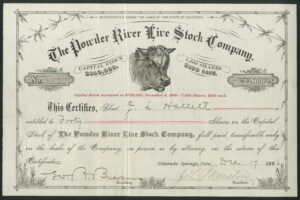 INCORPORATED UNDER THE LAWS OF THE STATE OF COLORADO.
The Powder River Live Stock Company.
CAPITAL STOCK
$200,000.
SHARES
$100 EACH.
This Certifies, That J. L. Hallett
Forty Shares in the Capital
Stock of The Powder River Live Stock Company, full paid, transferable only on
the books of the Company, in person or by attorney, on the return of this
Certificate.
Colorado Springs, Colo., Dec. 17 188
Secretary.
President.